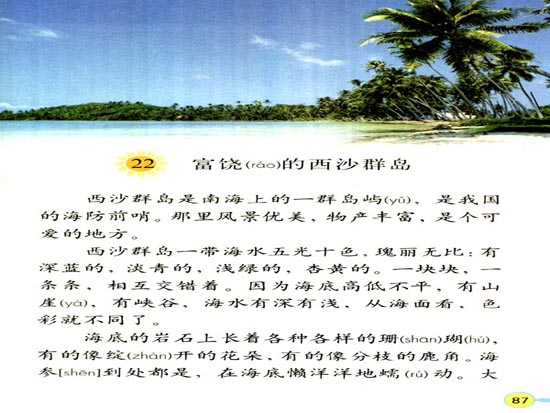 22 富饶(ráo)的西沙群岛
西沙群岛是南海上的一群岛屿(yǔ)，是我国
的海防前哨。那里风景优美，物产丰富，是个可
爱的地方。
西沙群岛一带海水五光十色，瑰丽无比：有
深蓝的，淡青的，浅绿的，杏黄的。一块块，一
条条，相互交错着。因为海底高低不平，有山
崖(yá)，有峡谷，海水有深有浅，从海面看，色
彩就不同了。
海底的岩石上长着各种各样的珊(shān)瑚(hú)，
有的像绽(zhàn)开的花朵，有的像分枝的鹿角。海
参[shēn]到处都是，在海底懒洋洋地蠕(rú)动。大
87